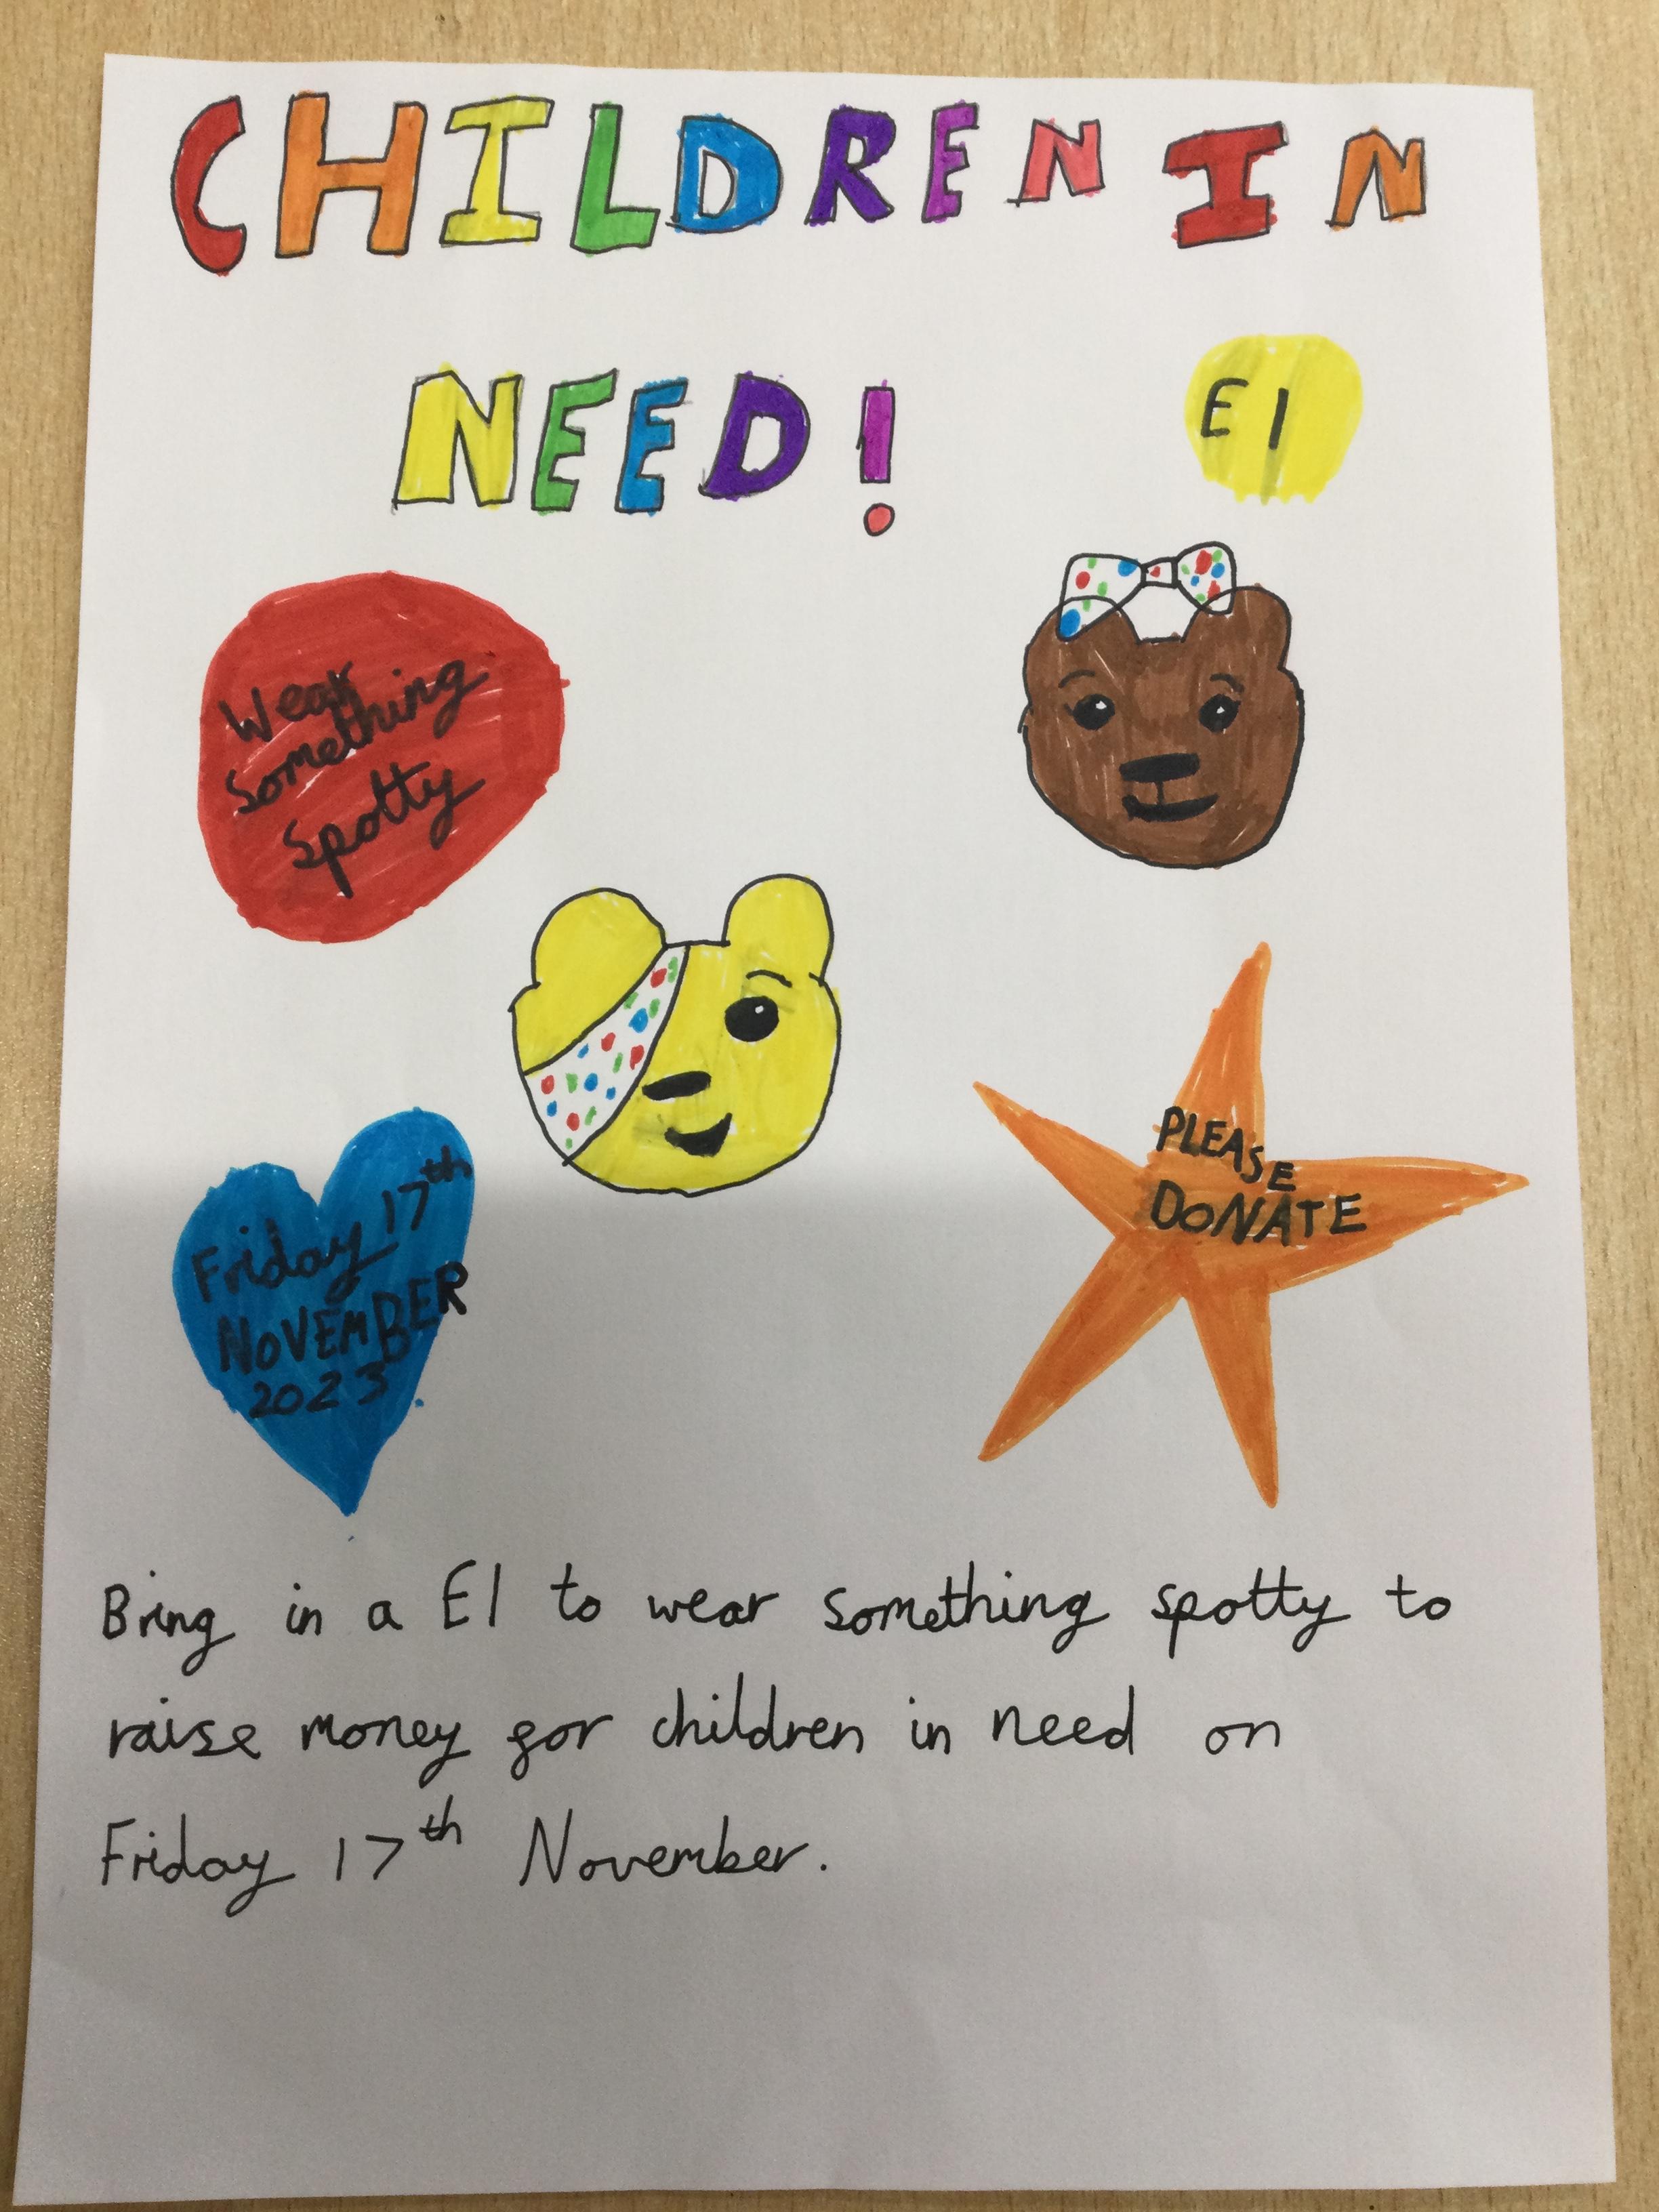 CHILDREN IN
NEED!
E1
Wear
Something
Spotty
Friday 17th
NOVEMBER
2023
PLEASE
DONATE
Bring in a E1 to wear something spotty to
raise money for children in need on
Friday 17th November.